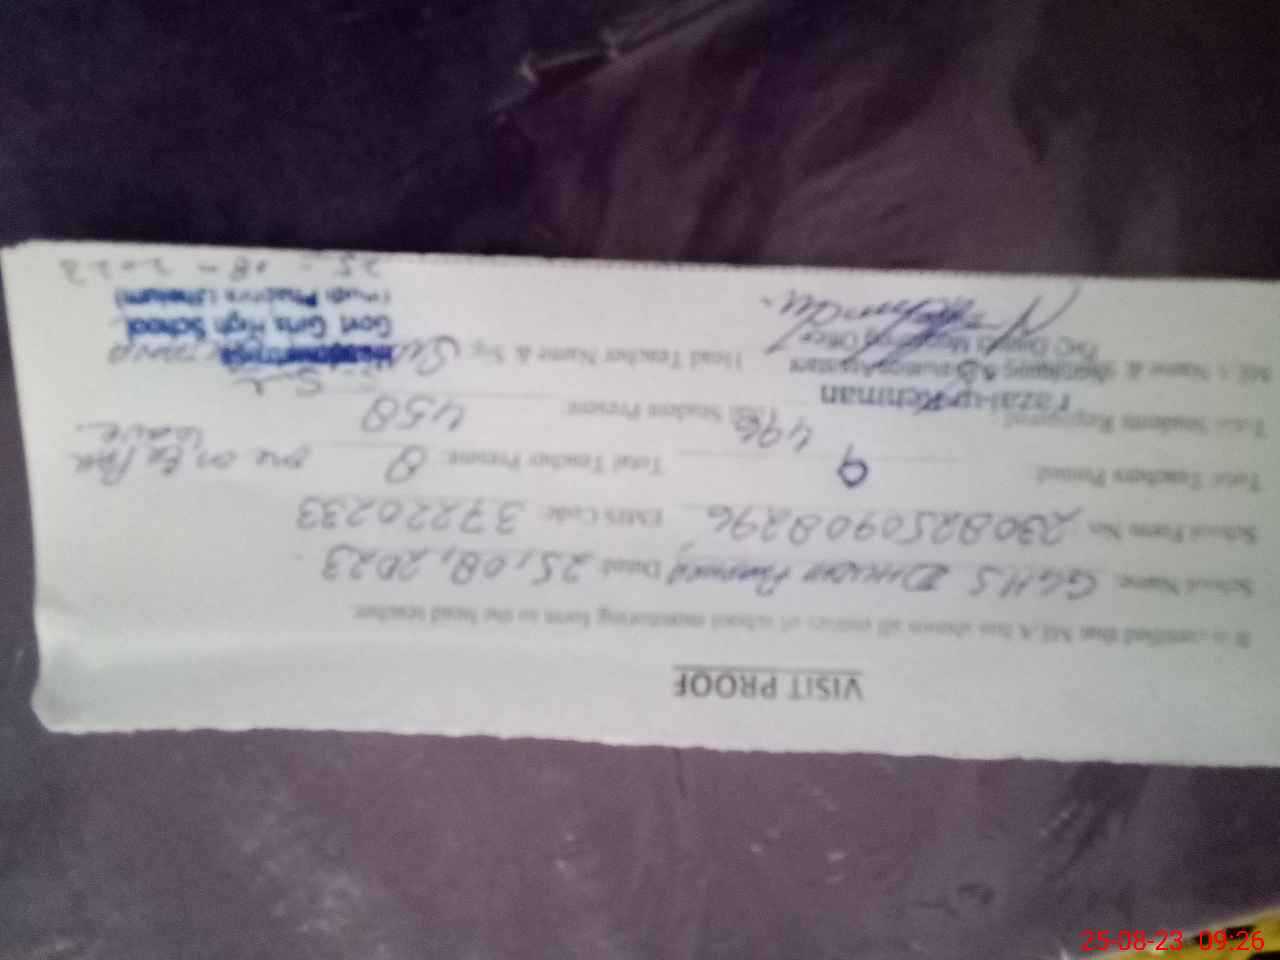 VISIT PROOF
It is certified that MEA has shown all entries of school monitoring form to the head teacher.
School Name: GGHS Dated: 25,08,2023
School Form No: 2308250908296 EMIS Code: 37220233
Total Teachers Posted: 9 Total Teacher Present: 8 one on Ex Pak leave
Total Students Registered: 496 Total Student Present: 450
Fazal-ur-Rehman
MEA Name & Monitoring & Evaluation Assistant Head Teacher Name & Sig:
O/o District Monitoring Officer
Headmistress
Govt Girls High School
(Jhelum)
25-08-2023
25-08-23 09:26